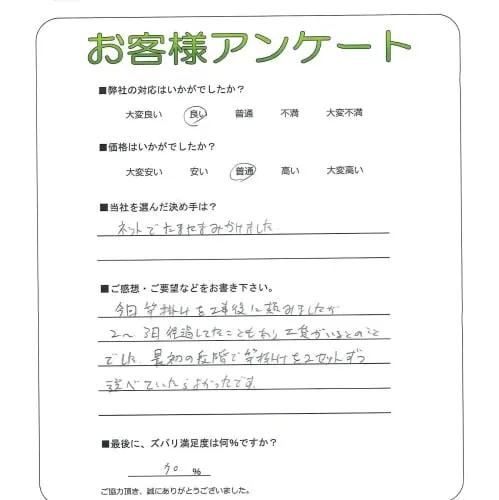 お客様アンケート
■弊社の対応はいかがでしたか？
大変良い 良い 普通 不満 大変不満
■価格はいかがでしたか？
大変安い 安い 普通 高い 大変高い
■当社を選んだ決め手は？
ネットでたまたまみかけました
■ご感想・ご要望などをお書き下さい。
今回 竿掛けを工事後に頼みましたが
2～3日経過してたこともあり工賃がいるとのこと
でした 最初の段階で竿掛けを2セットずつ
選べていたらよかったです。
■最後に、ズバリ満足度は何%ですか？
%
ご協力頂き、誠にありがとうございました。